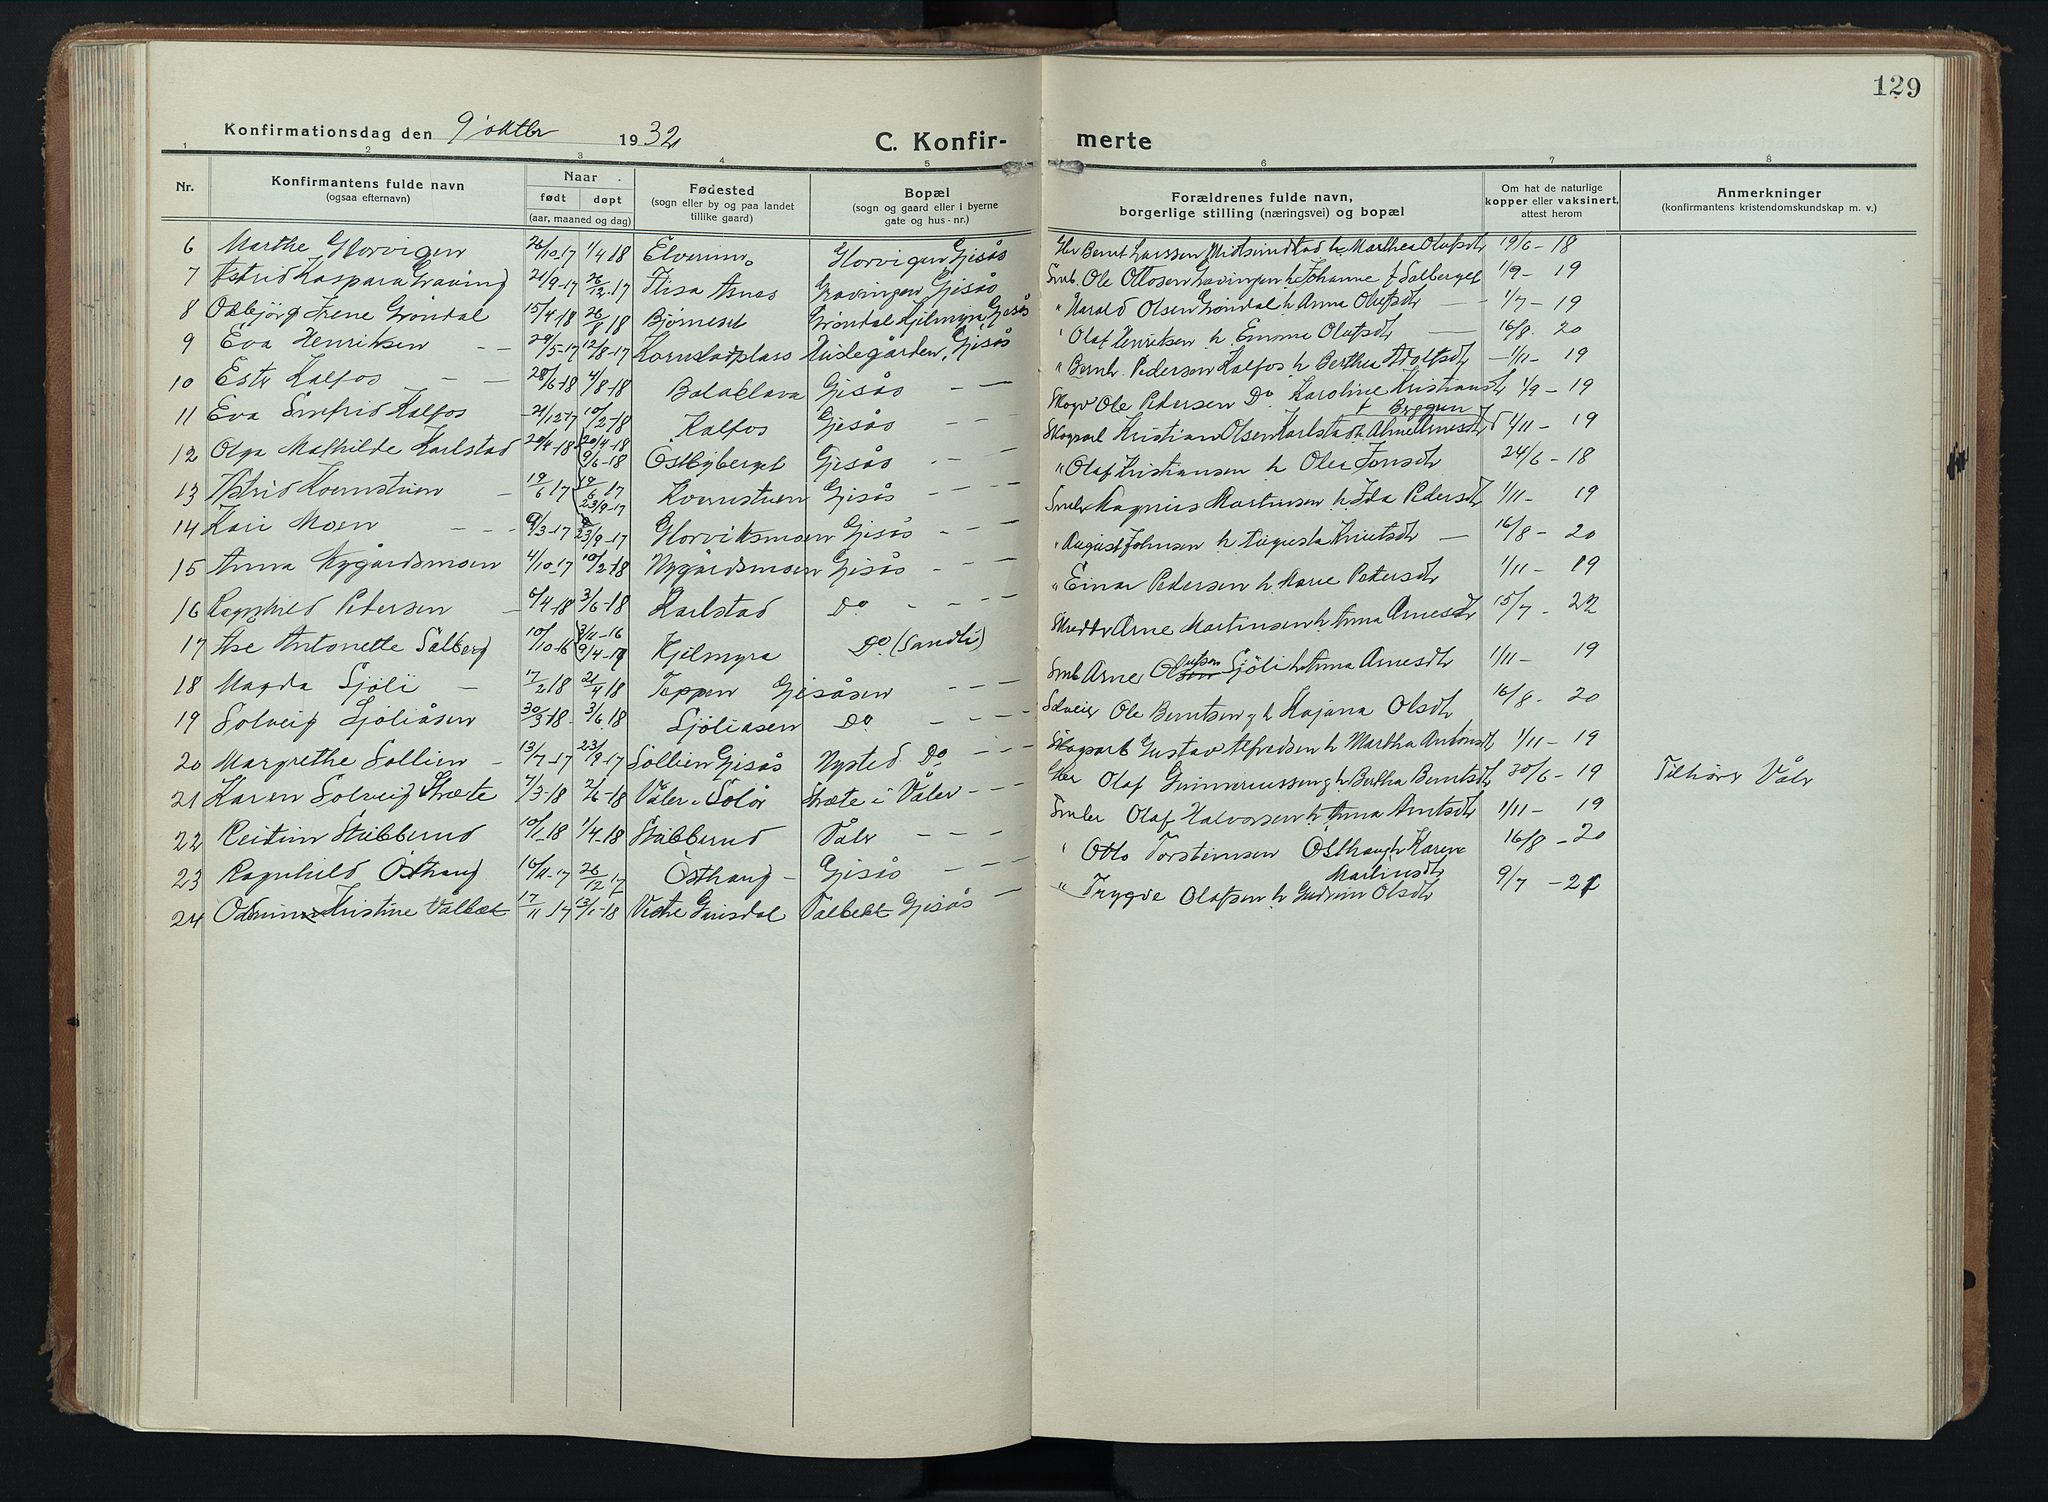 129
Konfirmationsdag den 9 oktbr 1932 C. Konfir- merte
1 2 3 4 5 6 7 8
Nr. Konfirmantens fulde navn (ogsaa efternavn) Naar født døpt (aar, maaned og dag) Fødested (sogn eller by og paa landet tillike gaard) Bopæl (sogn og gaard eller i byerne gate og hus-nr.) Forældrenes fulde navn, borgerlige stilling (næringsvei) og bopæl Om hat de naturlige kopper eller vaksinert, attest herom Anmerkninger (konfirmantens kristendomskundskap m. v.)
6 Marthe Glorvigen 26/10-17 1/4 18 Elverum Glorvigen Gjisås Bernt Larssen h. Marthea Olafsdtr 19/6-18
7 Astrid Kaspara Graving 21/9-17 26/12-17 Flisa Åsnes Gravingen Gjisås Smb. Ole Ottosen Gravingen h. Johanne f Solberget 1/9-19
8 Oddbjørg Irene Grøndal 15/4-18 26/8 18 Bjørneset Grøndal Kjilmyra, Gjisås " Harald Olsen Grøndal h Anna Olufsdtr 1/7-19
9 Eva Henriksen 29/5-17 12/8-17 Kornstadplass Huslegården, Gjisås " Olaf Henriksen h. Emma Olufsdtr 16/8-20
10 Estr Kalfos 28/6-18 4/8-18 Balaklava Gjisås " Bernh. Pedersen Kalfos h Berthea Adolfsdtr 1/11-19
11 Eva Sinfrid Kalfos 21/12-17 10/2-18 Kalfos Gjisås Skogv Ole Pedersen Do Karoline Kristiansdtr 1/9-19
f Bryggen
12 Olga Mathilde Karlstad 20/4-18 (20/4-18 9/6-18 Östbyberget Gjisås Skogarb Kristian Olsen Karlstad h. 1/11-19
13 Astrid Kvernstuen 19/6 17 (19/6 17 23/9-17 Kvernstuen Gjisås " Olaf Kristiansen h Olea Jonsdtr 24/6-18
14 Kari Moen 9/3-17 23/9-17 Glorviksmoen Gjisås Smbr Magnus Martinsen h. Ida Pedersdtr 1/11-19
15 Anna Nygårdsmoen 4/10-17 10/2-18 Nygårdsmoen Gjisås " August Johnsen h Augusta Knutsdtr 16/8-20
16 Ragnhild Pedersen 6/4-18 3/6-18 Karlstad Do " Einar Pedersen h. Marie Petersdtr 1/11-19
17 Åse Antonette Solberg 10/10-16 Kjilmyra Do (Sandli) Arne Martinsen h. Anna Arnesdtr 15/7-22
18 Magda Sjöli 17/2 18 21/4 18 Teppen Gjisåsen Smb Arne Olufsen Sjöli h. Anna Arnesdtr 1/11-19
19 Solveig Sjöliåsen 30/3-18 3/6 18 Sjöliåsen Do Ole Berntsen g h Kajana Olsdtr 16/8-20
20 Margrethe Sollien 13/7-17 23/9-17 Sollien Gjisås Nysted Do Skogsarb Gustav Alfredsen h Martha Antonsdtr 1/11-19
21 Karen Solveig Stræte 7/3-18 2/6-18 Våler i Solör Stræte i Våler Olaf Gunnerussen g h. Bertha Berntsdtr 30/6-19 Tilhörer Våler
22 Reidun Stubberud 10/1 18 1/4-18 Stubberud Våler Smbr Olaf Halvorsen h. Anna Arntsdtr 1/11-19
23 Ragnhild Östhaug 16/11-17 26/12 17 Östhaug Gjisås " Otto Torsteinsen Östhaug h Karen Martinsdtr 16/8-20
24 Kristine Vålbæt 17/11 17 13/1-18 Vestre Grusdal Vålbekt Gjisås " Trygve Olafsen h. Gudrun Olsdtr 9/7-21